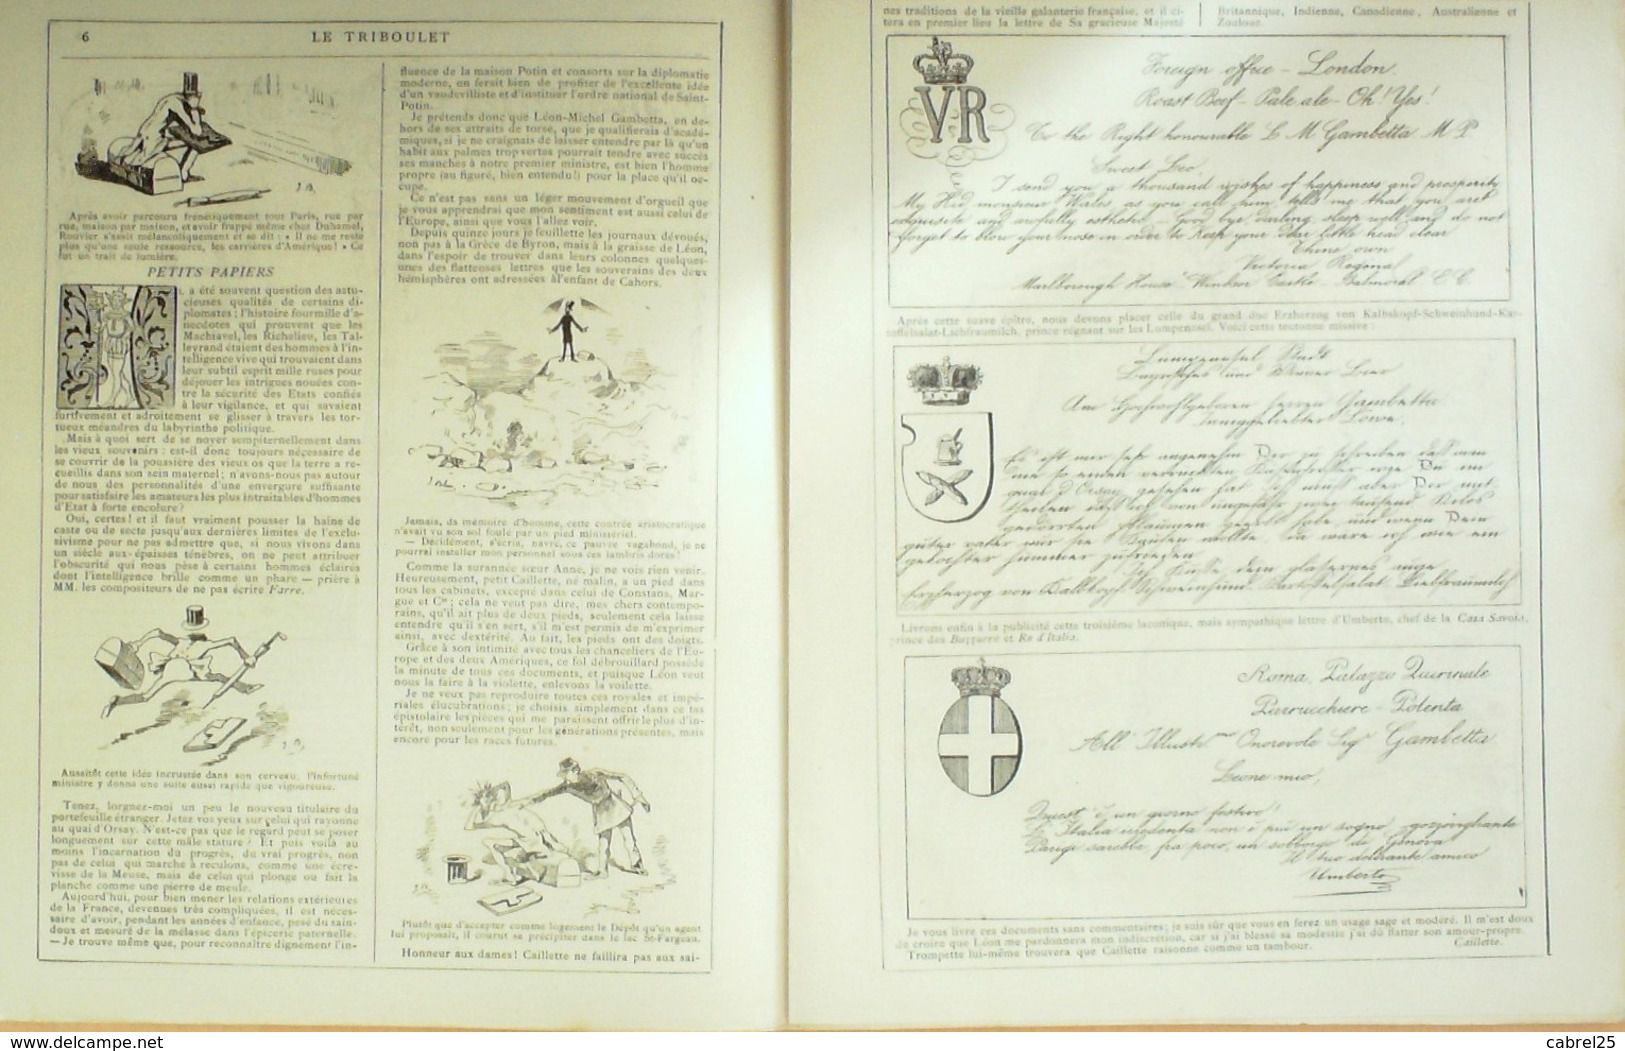 6
LE TRIBOULET
Après avoir parcouru frénétiquement tout Paris, rue par
rue, maison par maison, et avoir frappé même chez Duhamel,
Rouvier s'assit mélancoliquement et se dit : « Il ne me reste
plus qu'une seule ressource, les carrières d'Amérique! » Ce
fut un trait de lumière.
PETITS PAPIERS
IL a été souvent question des astu-
cieuses qualités de certains di-
plomates : l'histoire fourmille d'a-
necdotes qui prouvent que les
Machiavel, les Richelieu, les Tal-
leyrand étaient des hommes à l'in-
telligence vive qui trouvaient dans
leur subtil esprit mille ruses pour
déjouer les intrigues nouées con-
tre la sécurité des Etats confiés
à leur vigilance, et qui savaient
furtivement et adroitement se glisser à travers les tor-
tueux méandres du labyrinthe politique.
Mais à quoi sert de se noyer sempiternellement dans
les vieux souvenirs : est-il donc toujours nécessaire de
se couvrir de la poussière des vieux os que la terre a re-
cueillis dans son sein maternel ; n'avons-nous pas autour
de nous des personnalités d'une envergure suffisante
pour satisfaire les amateurs les plus intraitables d'hommes
d'Etat à forte encolure?
Oui, certes! et il faut vraiment pousser la haine de
caste ou de secte jusqu'aux dernières limites de l'exclu-
sivisme pour ne pas admettre que, si nous vivons dans
un siècle aux épaisses ténèbres, on ne peut attribuer
l'obscurité qui nous pèse à certains hommes éclairés
dont l'intelligence brille comme un phare — prière à
MM. les compositeurs de ne pas écrire Farre.
Aussitôt cette idée incrustée dans son cerveau, l'infortuné
ministre y donna une suite aussi rapide que vigoureuse.
Tenez, lorgnez-moi un peu le nouveau titulaire du
portefeuille étranger. Jetez vos yeux sur celui qui rayonne
au quai d'Orsay. N'est-ce pas que le regard peut se poser
longuement sur cette mâle stature? Et puis voilà au
moins l'incarnation du progrès, du vrai progrès, non
pas de celui qui marche à reculons, comme une écre-
visse de la Meuse, mais de celui qui plonge ou fait la
planche comme une pierre de meule.
Aujourd'hui, pour bien mener les relations extérieures
de la France, devenues très compliquées, il est néces-
saire d'avoir, pendant les années d'enfance, pesé du sain-
doux et mesuré de la mélasse dans l'épicerie paternelle.
— Je trouve même que, pour reconnaître dignement l'in-
fluence de la maison Potin et consorts sur la diplomatie
moderne, on ferait bien de profiter de l'excellente idée
d'un vaudevilliste et d'instituer l'ordre national de Saint-
Potin.
Je prétends donc que Léon-Michel Gambetta, en de-
hors de ses attraits de torse, que je qualifierais d'acadé-
miques, si je ne craignais de laisser entendre par là qu'un
habit aux palmes trop vertes pourrait tendre avec succès
ses manches à notre premier ministre, est bien l'homme
propre (au figuré, bien entendu!) pour la place qu'il oc-
cupe.
Ce n'est pas sans un léger mouvement d'orgueil que
je vous apprendrai que mon sentiment est aussi celui de
l'Europe, ainsi que vous l'allez voir.
Depuis quinze jours je feuillette les journaux dévoués,
non pas à la Grèce de Byron, mais à la graisse de Léon,
dans l'espoir de trouver dans leurs colonnes quelques-
unes des flatteuses lettres que les souverains des deux
hémisphères ont adressées à l'enfant de Cahors.
Jamais, de mémoire d'homme, cette contrée aristocratique
n'avait vu son sol foulé par un pied ministériel.
— Décidément, s'écrie, navré, ce pauvre vagabond, je ne
pourrai installer mon personnel sous ces lambris dorés!
Comme la surannée sœur Anne, je ne vois rien venir.
Heureusement, petit Caillette, né malin, a un pied dans
tous les cabinets, excepté dans celui de Constans, Mar-
gue et Cie ; cela ne veut pas dire, mes chers contempo-
rains, qu'il ait plus de deux pieds, seulement cela laisse
entendre qu'il s'en sert, s'il m'est permis de m'exprimer
ainsi, avec dextérité. Au fait, les pieds ont des doigts.
Grâce à son intimité avec tous les chanceliers de l'Eu-
rope et des deux Amériques, ce fol débrouillard possède
la minute de tous ces documents, et puisque Léon veut
nous la faire à la violette, enlevons la voilette.
Je ne veux pas reproduire toutes ces royales et impé-
riales élucubrations; je choisis simplement dans ce tas
épistolaire les pièces qui me paraissent offrir le plus d'in-
térêt, non seulement pour les générations présentes, mais
encore pour les races futures.
Plutôt que d'accepter comme logement le Dépôt qu'un agent
lui proposait, il courut se précipiter dans le lac St-Fargeau.
Honneur aux dames! Caillette ne faillira pas aux sai-
nes traditions de la vieille galanterie française, et il ci-
tera en premier lieu la lettre de Sa gracieuse Majesté
Britannique, Indienne, Canadienne, Australienne et
Zouloue.
VR
Foreign office – London
Roast Beef – Pale ale – Oh! Yes!
To the Right honourable L M Gambetta M P
Sweet Leo,
I send you a thousand wishes of happiness and prosperity
My Kid monsieur Wales as you call him tells me that you are
exquisite and awfully esthetic – Good bye darling sleep well and do not
forget to blow your nose in order to keep your dear little head clear
Thine own
Victoria Regonal
Marlborough House Windsor Castle – Balmoral E. C.
Après cette suave épître, nous devons placer celle du grand duc Erzherzog von Kalbskopf-Schweinhund-Kar-
toffelsalat-Liebfraumilch, prince régnant sur les Lumpenesel. Voici cette teutonne missive :
Lumpenesel Stadt
Bayrisches und Braver Bier
Am Hochwohlgeboren Herren Gambetta
Es ist mir sehr angenehm Dir zu schreiben dass man
quai d'Orsay gesehen hat
Erzherzog von Kalbkopf Schweinhund Kartoffelsalat Liebfraumilch
Livrons enfin à la publicité cette troisième laconique, mais sympathique lettre d'Umberto, chef de la CASA SAVOIA,
prince des Buzzurre et Re d'Italia.
Roma, Palazzo Quirinale
Parrucchiere – Polenta
All' Illustr.mo Onorevole Sig.r Gambetta
Leone mio,
Quest' è un giorno festivo!
L'Italia irredenta non è più un sogno
Parigi sarebbe fra poco, un sobborgo di Genova
Il tuo amico
Umberto
Je vous livre ces documents sans commentaires; je suis sûr que vous en ferez un usage sage et modéré. Il m'est doux
de croire que Léon me pardonnera mon indiscrétion, car si j'ai blessé sa modestie j'ai dû flatter son amour-propre.
Trompette lui-même trouvera que Caillette raisonne comme un tambour.
Caillette.
www.delcampe.net
cabrel25